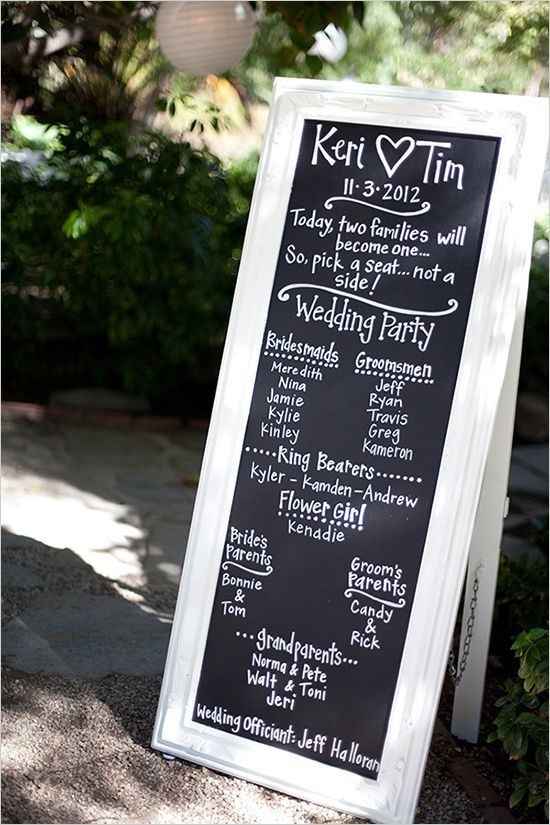 Keri ♡ Tim
11·3·2012
Today, two families will
become one...
So, pick a seat... not a
side!
Wedding Party
Bridesmaids
Meredith
Nina
Jamie
Kylie
Kinley
Groomsmen
Jeff
Ryan
Travis
Greg
Kameron
Ring Bearers
Kyler - Kamden - Andrew
Flower Girl
Kenadie
Bride's
Parents
Bonnie
&
Tom
Groom's
Parents
Candy
&
Rick
...grandparents...
Norma & Pete
Walt & Toni
Jeri
Wedding Officiant: Jeff Halloran